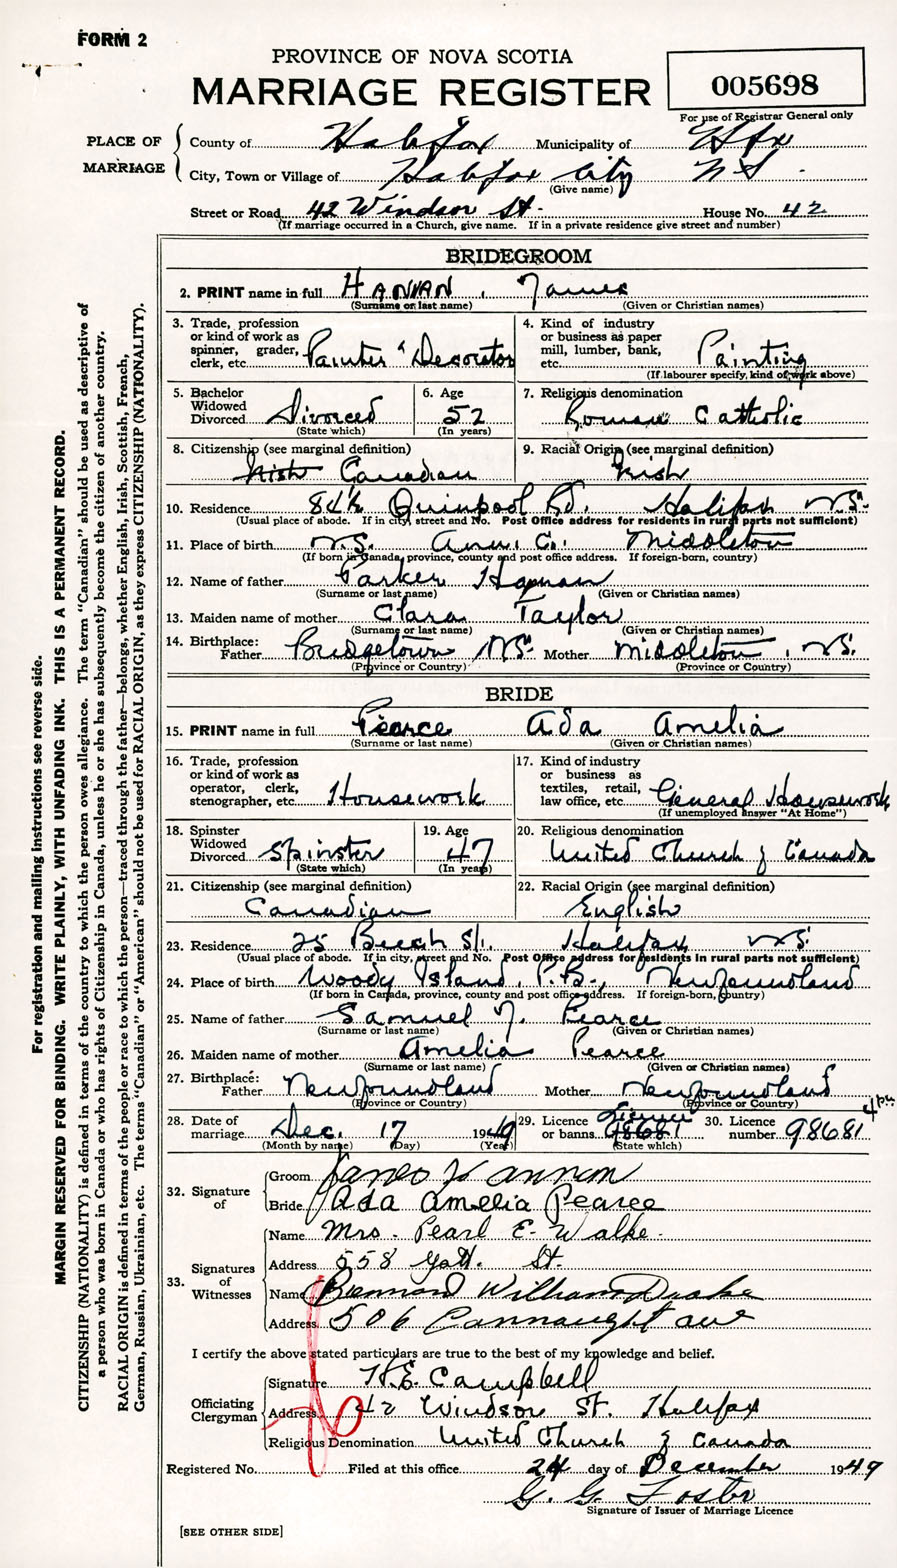 FORM 2
PROVINCE OF NOVA SCOTIA
MARRIAGE REGISTER
005698
For use of Registrar General only
PLACE OF MARRIAGE
County of Halifax Municipality of Hfx
City, Town or Village of Halifax City N S
(Give name)
Street or Road 42 Windsor St. House No. 42
(If marriage occurred in a Church, give name. If in a private residence give street and number)
BRIDEGROOM
2. PRINT name in full HANNAN, James
(Surname or last name) (Given or Christian names)
3. Trade, profession or kind of work as spinner, grader, clerk, etc. Painter & Decorator
4. Kind of industry or business as paper mill, lumber, bank, etc. Painting
(If labourer specify, kind of work above)
5. Bachelor Widowed Divorced Divorced
(State which)
6. Age 52
(In years)
7. Religious denomination Roman Catholic
8. Citizenship (see marginal definition) Irish Canadian
9. Racial Origin (see marginal definition) Irish
10. Residence 84½ Quinpool Rd. Halifax N.S.
(Usual place of abode. If in city, street and No. Post Office address for residents in rural parts not sufficient)
11. Place of birth N.S. Ann. C. Middleton
(If born in Canada, province, county and post office address. If foreign-born, country)
12. Name of father Parker Hannan
(Surname or last name) (Given or Christian names)
13. Maiden name of mother Clara Taylor
(Surname or last name) (Given or Christian names)
14. Birthplace: Father Bridgetown N.S. Mother Middleton, N.S.
(Province or Country) (Province or Country)
BRIDE
15. PRINT name in full Pearce Ada Amelia
(Surname or last name) (Given or Christian names)
16. Trade, profession or kind of work as operator, clerk, stenographer, etc. Housework
17. Kind of industry or business as textiles, retail, law office, etc. General Housework
(If unemployed answer "At Home")
18. Spinster Widowed Divorced Spinster
(State which)
19. Age 47
(In years)
20. Religious denomination United Church of Canada
21. Citizenship (see marginal definition) Canadian
22. Racial Origin (see marginal definition) English
23. Residence 25 Beech St. Halifax N.S.
(Usual place of abode. If in city, street and No. Post Office address for residents in rural parts not sufficient)
24. Place of birth Woody Island, P.B., Newfoundland
(If born in Canada, province, county and post office address. If foreign-born, country)
25. Name of father Samuel J. Pearce
(Surname or last name) (Given or Christian names)
26. Maiden name of mother Amelia Pearce
(Surname or last name) (Given or Christian names)
27. Birthplace: Father Newfoundland Mother Newfoundland
(Province or Country) (Province or Country)
28. Date of marriage Dec. 17 1949
(Month by name) (Day) (Year)
29. Licence or banns License 98681
(State which)
30. Licence number 98681 4pm
32. Signature of
Groom James Hannon
Bride Ada Amelia Pearce
33. Signatures of Witnesses
Name Mrs. Pearl E. Walke.
Address 558 St.
Name Bernard William Drake
Address 506 Connaught Ave
I certify the above stated particulars are true to the best of my knowledge and belief.
Officiating Clergyman
Signature H.E. Campbell
Address 42 Windsor St. Halifax
Religious Denomination United Church of Canada
Registered No. Filed at this office 24 day of December 1949
G. G. Foster
Signature of Issuer of Marriage Licence
[SEE OTHER SIDE]
For registration and mailing instructions see reverse side.
MARGIN RESERVED FOR BINDING. WRITE PLAINLY, WITH UNFADING INK. THIS IS A PERMANENT RECORD.
CITIZENSHIP (NATIONALITY) is defined in terms of the country to which the person owes allegiance. The term "Canadian" should be used as descriptive of
a person who was born in Canada or who has rights of Citizenship in Canada, unless he or she has subsequently become the citizen of another country.
RACIAL ORIGIN is defined in terms of the people or race to which the person—traced through the father—belongs, whether English, Irish, Scottish, French,
German, Russian, Ukrainian, etc. The terms "Canadian" or "American" should not be used for RACIAL ORIGIN, as they express CITIZENSHIP (NATIONALITY).